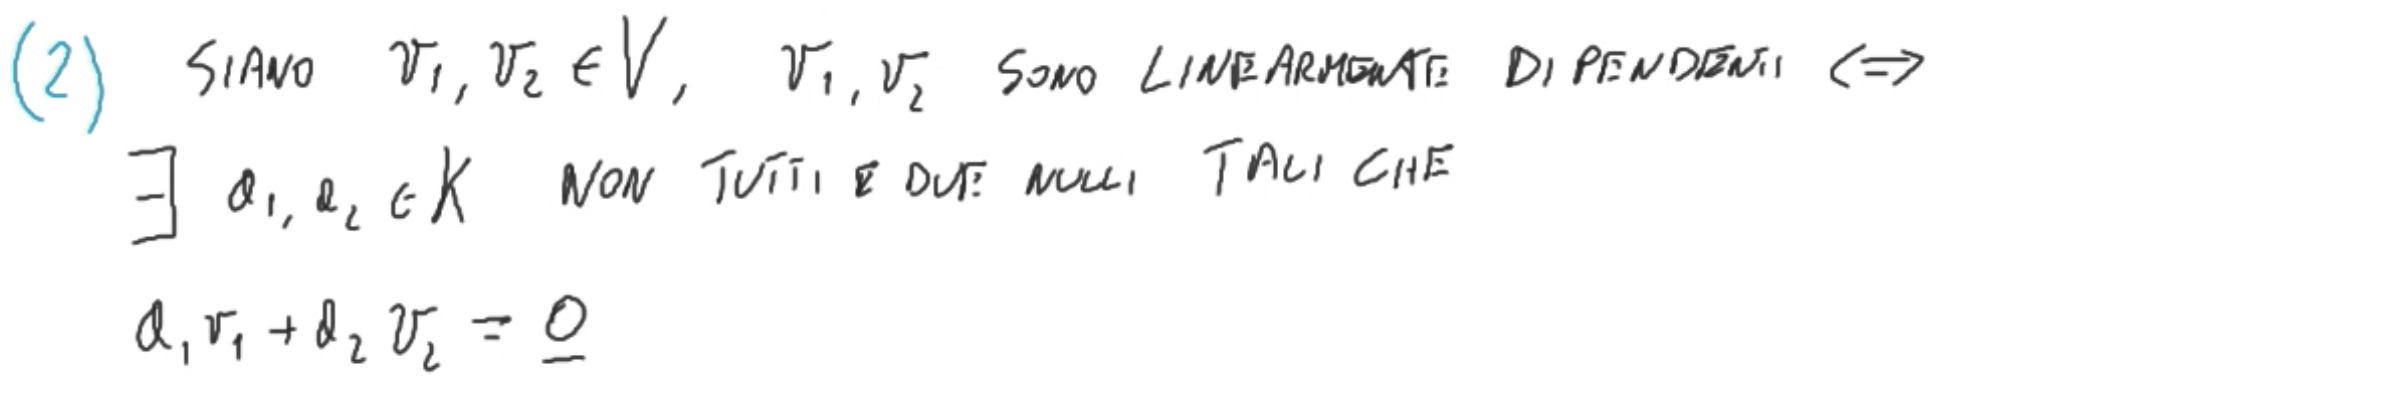 (2) SIANO v₁, v₂ ∈ V, v₁, v₂ SONO LINEARMENTE DIPENDENTI <=>
∃ a₁, a₂ ∈ K NON TUTTI E DUE NULLI TALI CHE
a₁v₁ + a₂v₂ = 0